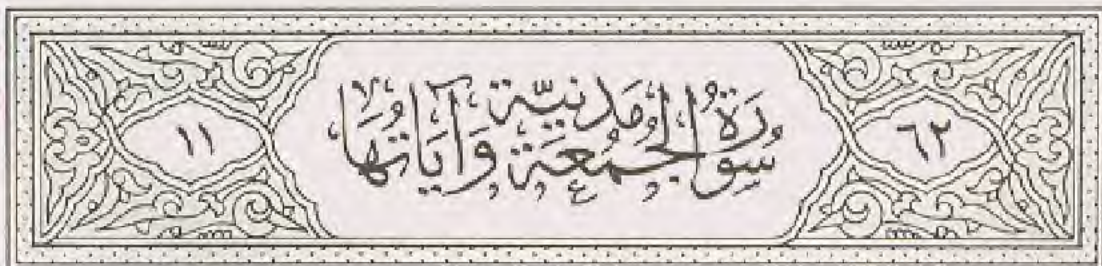 ٦٢
سُورَةُ الجُمُعَةِ مَدَنِيَّة وَآيَاتُهَا
١١